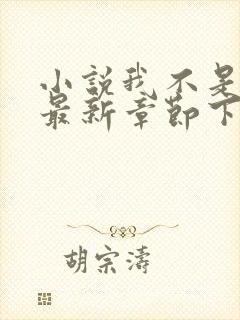 小說我不是
最新章節下
胡宗濤